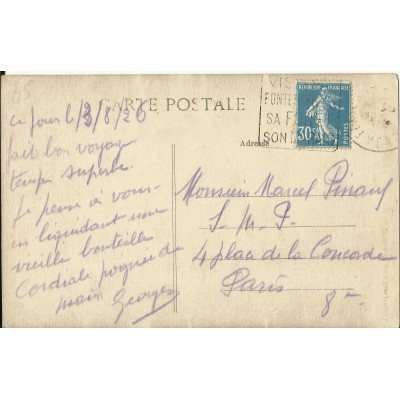 85
CARTE POSTALE
ce jour l/3/8/26
fait bon voyage
temps superbe.
Je pense à vous
en liquidant une
vieille bouteille
Cordiale poignée de
main Georges
VIS
FONTE
SA F
SON
REPUBLIQUE FRANÇAISE
30c
POSTES
Adresse
Monsieur Marcel Pinard
S. M. P.
4 place de la Concorde
Paris
8e